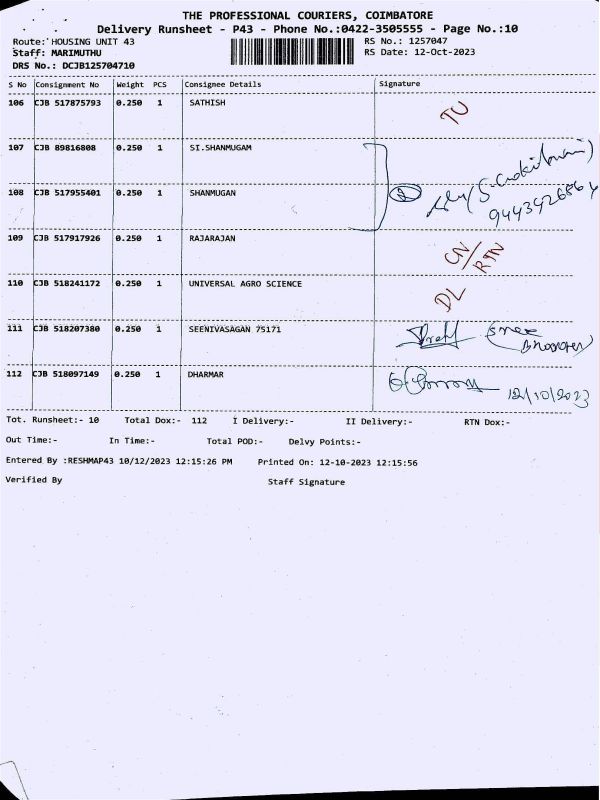 THE PROFESSIONAL COURIERS, COIMBATORE
Delivery Runsheet - P43 - Phone No.:0422-3505555 - Page No.:10
Route: HOUSING UNIT 43 RS No.: 1257047
Staff: MARIMUTHU RS Date: 12-Oct-2023
DRS No.: DCJB125704710
S No Consignment No Weight PCS Consignee Details Signature
106 CJB 517875793 0.250 1 SATHISH TU
107 CJB 89816808 0.250 1 SI.SHANMUGAM
108 CJB 517955401 0.250 1 SHANMUGAN 2
109 CJB 517917926 0.250 1 RAJARAJAN CN/RTN
110 CJB 518241172 0.250 1 UNIVERSAL AGRO SCIENCE DL
111 CJB 518207380 0.250 1 SEENIVASAGAN 75171
112 CJB 518097149 0.250 1 DHARMAR 12/10/2023
Tot. Runsheet:- 10 Total Dox:- 112 I Delivery:- II Delivery:- RTN Dox:-
Out Time:- In Time:- Total POD:- Delvy Points:-
Entered By :RESHMAP43 10/12/2023 12:15:26 PM Printed On: 12-10-2023 12:15:56
Verified By Staff Signature